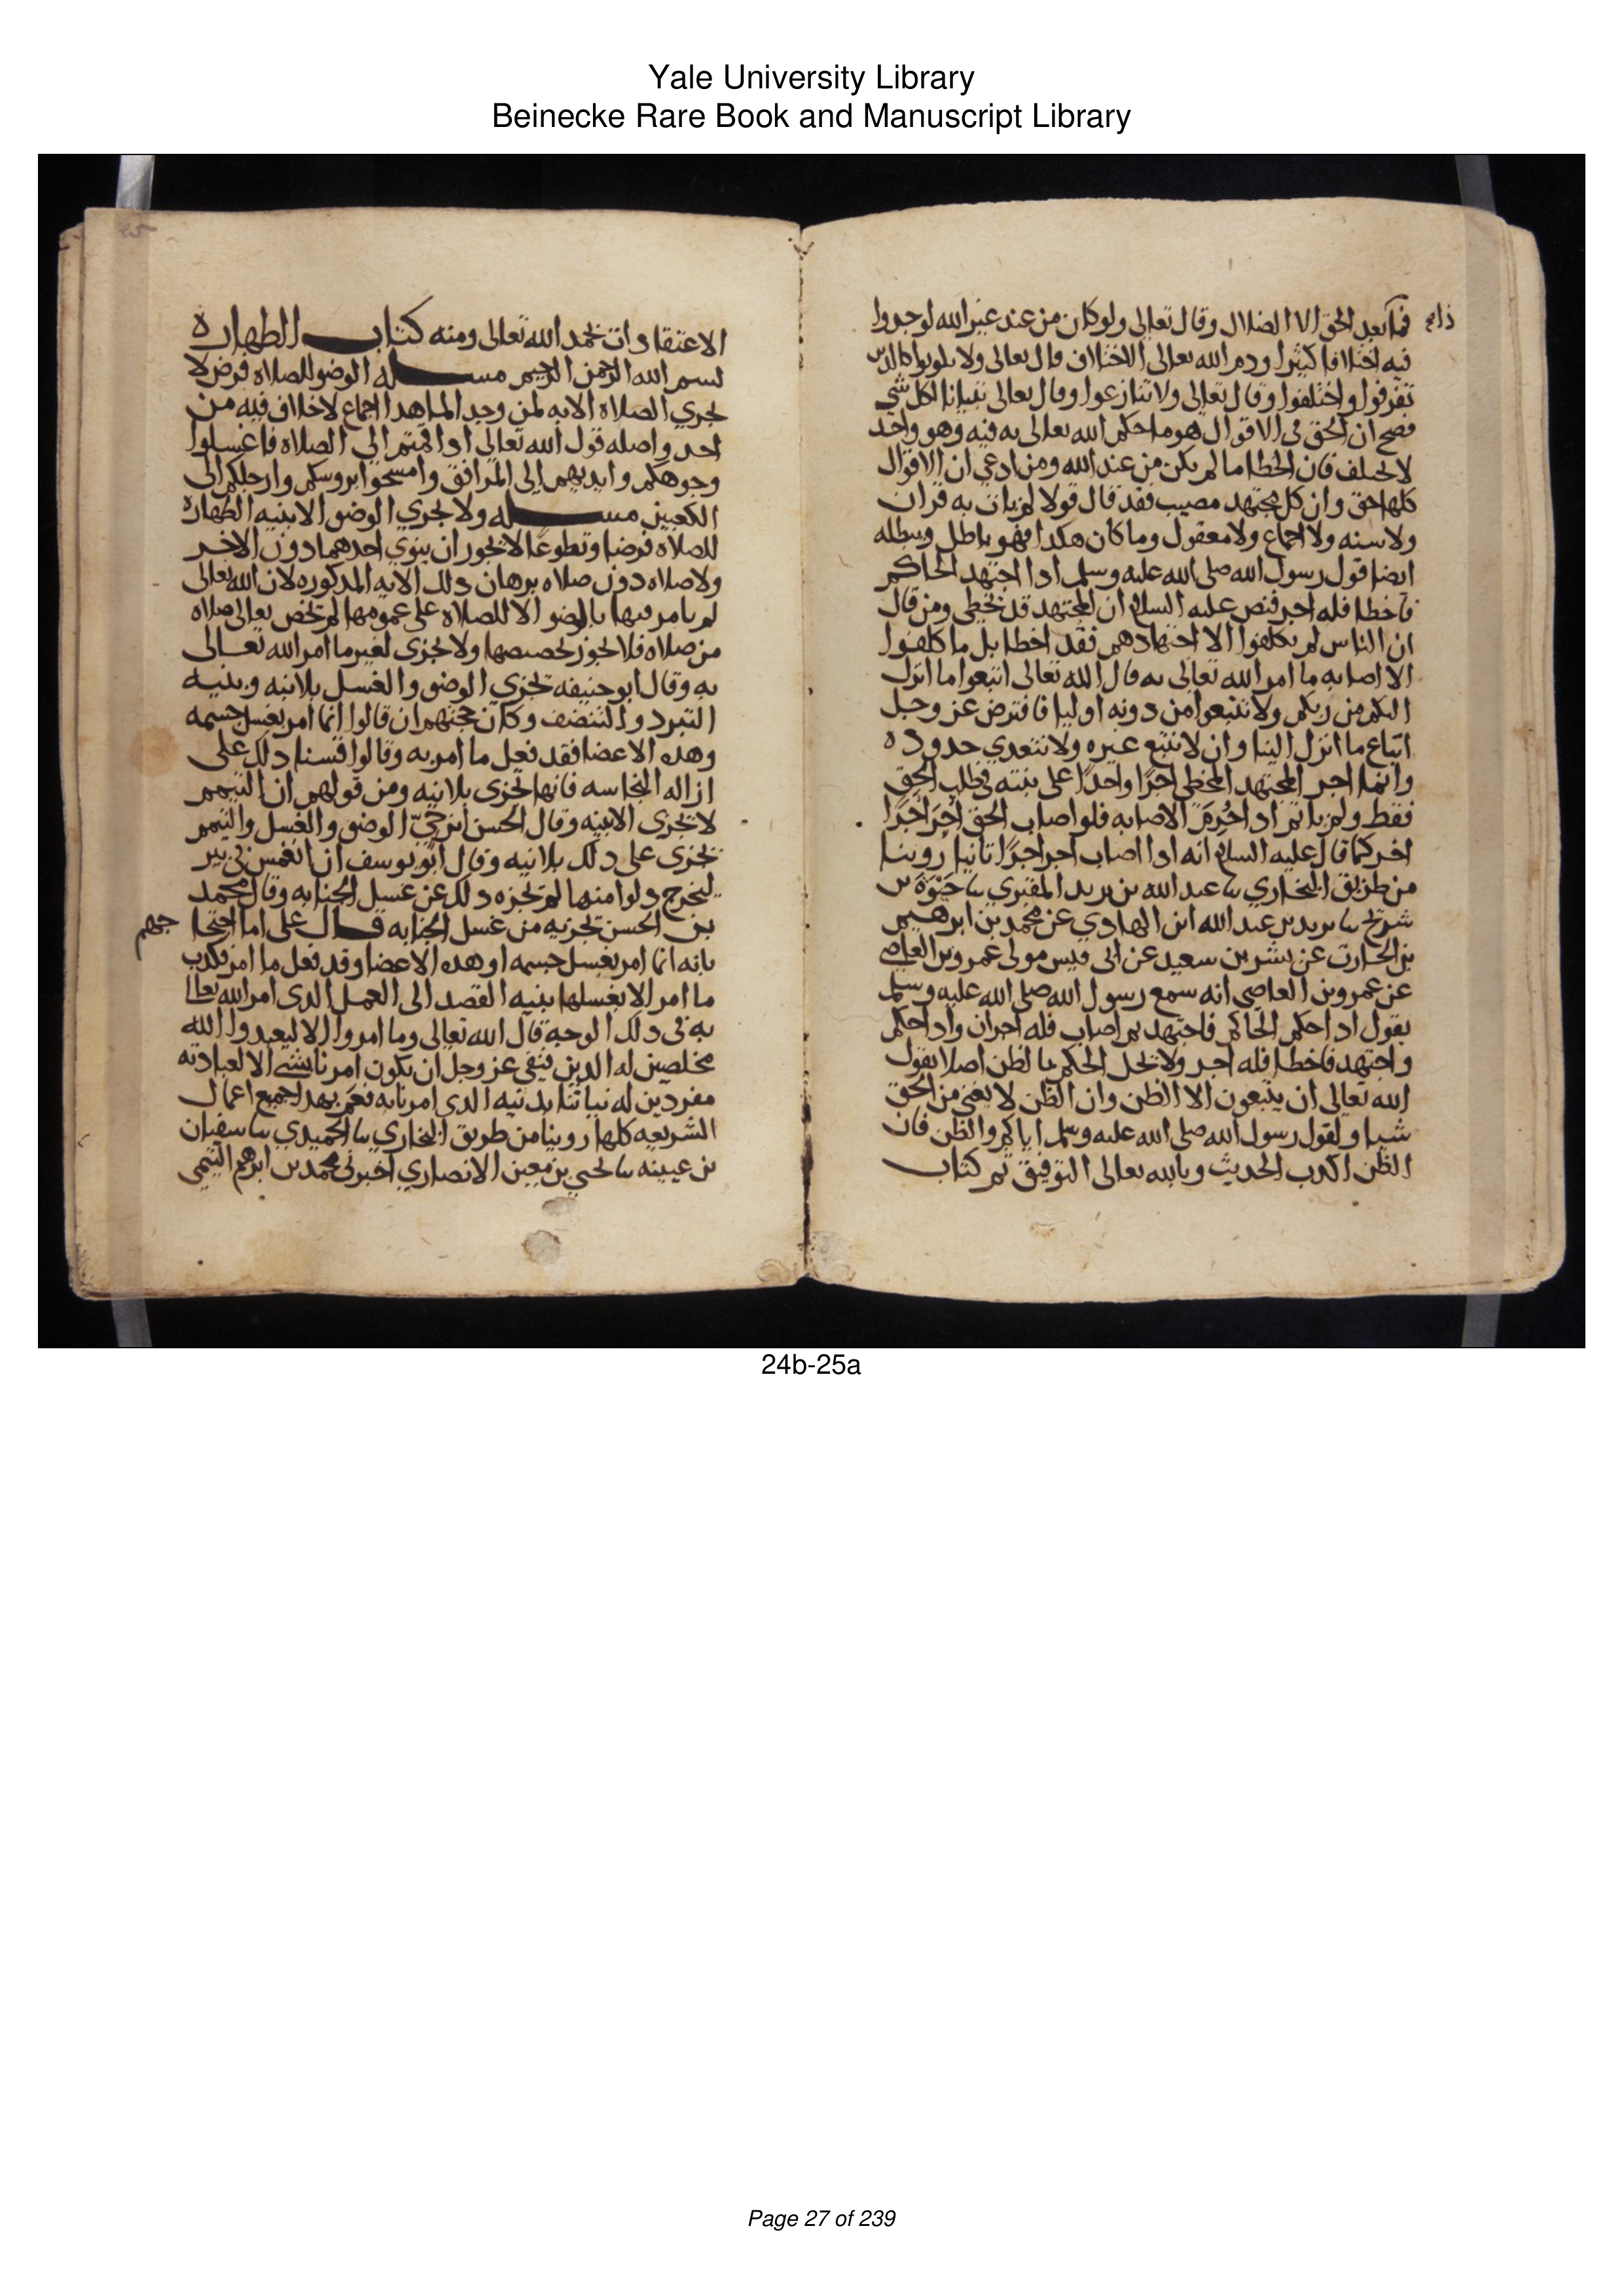 Yale University Library
Beinecke Rare Book and Manuscript Library
فماذا بعد الحق الا الضلال وقال تعالى ولو كان من عند غير الله لوجدوا
فيه اختلافا كثيرا وذم الله تعالى الاختلاف قال تعالى ولا تكونوا كالذين
تفرقوا واختلفوا وقال تعالى ولا تنازعوا وقال تعالى تبيانا لكل شي
فصح ان الحق في الاقوال هو ما حكم الله تعالى به فيه وهو واحد
لا يختلف فان الخطا ما لم يكن من عند الله ومن ادعى ان الاقوال
كلها حق وان كل مجتهد مصيب فقد قال قولا لم يات به قران
ولا سنه ولا اجماع ولا معقول وما كان هكذا فهو باطل ويبطله
ايضا قول رسول الله صلى الله عليه وسلم اذا اجتهد الحاكم
فاخطا فله اجر فنص عليه السلام ان المجتهد قد يخطي ومن قال
ان الناس لم يكلفوا الا اجتهادهم فقد اخطا بل ما كلفوا
الا اصابه ما امر الله تعالى به قال الله تعالى اتبعوا ما انزل
اليكم من ربكم ولا تتبعوا من دونه اوليا فافترض عز وجل
اتباع ما انزل الينا وان لا نتبع غيره ولا نتعدى حدوده
وانما اجر المجتهد المخطي اجرا واحدا على نيته في طلب الحق
فقط ولم ياثم اذ احُرِمَ الاصابه فلو اصاب الحق اجر اجرا
اخر كما قال عليه السلام انه اذا اصاب اجر اجرا ثانيا روينا
من طريق البخاري ثنا عبد الله بن يزيد المقبري ثنا حَيْوَة بن
شريح ثنا يزيد بن عبد الله ابن الهادي عن محمد بن ابرهيم
بن الحارث عن بشر بن سعيد عن ابي قيس مولى عمرو بن العاصي
عن عمرو بن العاصي انه سمع رسول الله صلى الله عليه وسلم
يقول اذا حكم الحاكم فاجتهد ثم اصاب فله اجران واذا حكم
واجتهد فاخطا فله اجر ولا يحل الحكم بالظن اصلا لقول
الله تعالى ان يتبعون الا الظن وان الظن لا يغني من الحق
شيا ولقول رسول الله صلى الله عليه وسلم اياكم والظن فان
الظن اكذب الحديث وبالله تعالى التوفيق تم كتاب
25
الاعتقادات بحمد الله تعالى ومنه كتاب الطهاره
بسم الله الرحمن الرحيم مسله الوضو للصلاه فرض لا
تجزي الصلاه الا به لمن وجد الما هذا اجماع لا خلاف فيه من
احد واصله قول الله تعالى اذا قمتم الى الصلاه فاغسلوا
وجوهكم وايديهم الى المرافق وامسحوا بروسكم وارجلكم الى
الكعبين مسله ولا يجزي الوضو الا بنيه الطهاره
للصلاه فرضا وتطوعا لا يجوز ان ينوي احدهما دون الاخر
ولا صلاه دون صلاه برهان ذلك الايه المذكوره لان الله تعالى
لم يامر فيها بالوضو الا للصلاة على عمومها لم يخص تعالى صلاه
من صلاه فلا يجوز تخصيصها ولا يجزى لغير ما امر الله تعالى
به وقال ابو حنيفه تجزي الوضو والغسل بلا نيه وبنيه
التبرد والتنضف وكان حجتهم ان قالوا انما امر بغسل جسمه
وهذه الاعضا فقد فعل ما امر به وقالوا قسنا ذلك على
ازاله النجاسه فانها تجزى بلا نيه ومن قولهم ان التيمم
لا يجزى الا بنيه وقال الحسن ابن حيّ الوضو والغسل والتيمم
يجزى على ذلك بلا نيه وقال ابو يوسف ان انغمس في بير
ليخرج دلوا منها لم يجزه ذلك عن غسل الجنابه وقال محمد
بن الحسن تجزيه من غسل الجنابه قال على اما احتجاجهم
بانه انما امر بغسل جسمه او هذه الاعضا وقد فعل ما امر فكذب
ما امر الا بغسلها بنيه القصد الى العمل الذى امر الله تعالى
به في ذلك الوجه قال الله تعالى وما امروا الا ليعبدوا الله
مخلصين له الدين فنفى عز وجل ان يكون امرنا بشي الا لعبادته
مفردين له نياتنا بدينه الذى امرنا به فعَمّ بهذا جميع اعمال
الشريعه كلها روينا من طريق البخاري ثنا الحميدي ثنا سفيان
بن عيينه ثنا يحيي بن معين الانصاري اخبرني محمد بن ابرهم التيمي
24b-25a
Page 27 of 239